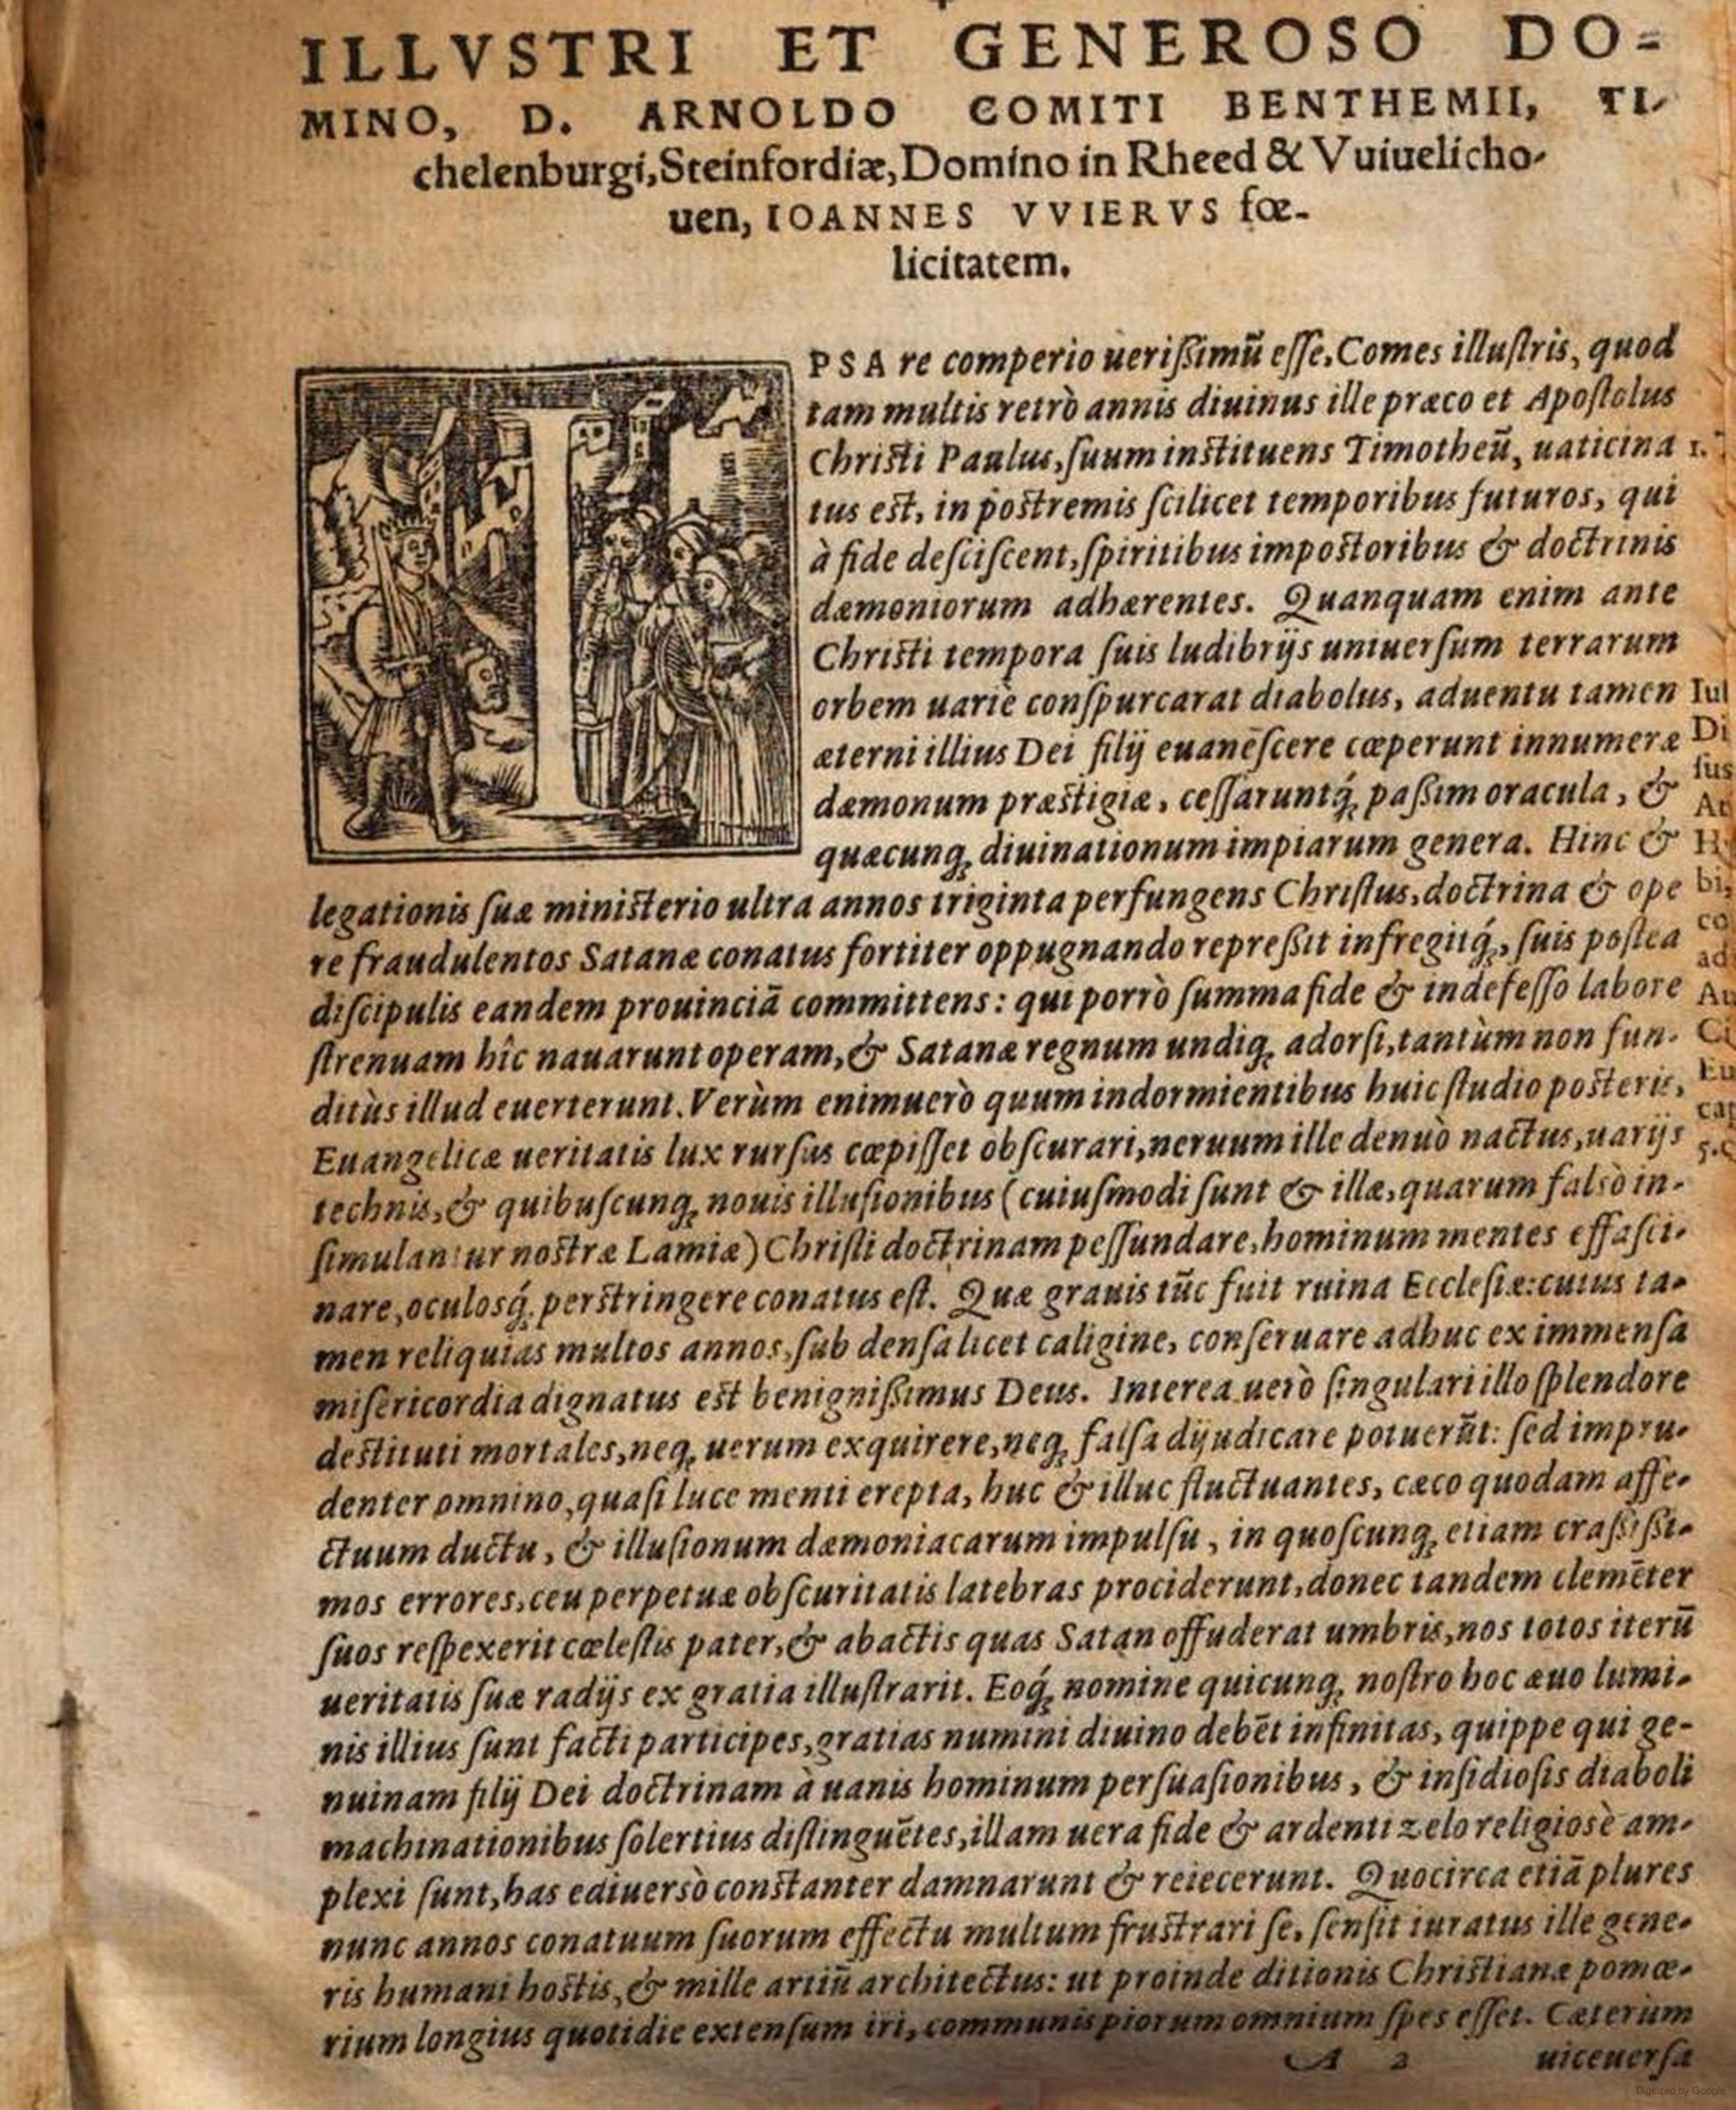 ILLVSTRI ET GENEROSO DO=
MINO, D. ARNOLDO COMITI BENTHEMII, TI-
chelenburgi, Steinfordiæ, Domino in Rheed & Vuiuelicho-
uen, IOANNES VVIERVS fœ-
licitatem.
IPSA re comperio uerißimũ eſſe, Comes illuſtris, quod
tam multis retrò annis diuinus ille præco et Apoſtolus
Chriſti Paulus, ſuum inſtituens Timotheũ, uaticina
tus eſt, in poſtremis ſcilicet temporibus futuros, qui
à fide deſciſcent, ſpiritibus impoſtoribus & doctrinis
dæmoniorum adhærentes. Quanquam enim ante
Chriſti tempora ſuis ludibrijs uniuerſum terrarum
orbem uariè conſpurcarat diabolus, aduentu tamen
æterni illius Dei filij euaneſcere cœperunt innumeræ
dæmonum præſtigiæ, ceſſaruntq́; paßim oracula, &
quæcunq; diuinationum impiarum genera. Hinc &
legationis ſuæ miniſterio ultra annos triginta perfungens Chriſtus, doctrina & ope
re fraudulentos Satanæ conatus fortiter oppugnando repreßit infregitq́;, ſuis poſtea
diſcipulis eandem prouinciã committens: qui porrò ſumma fide & indefeſſo labore
ſtrenuam hîc nauarunt operam, & Satanæ regnum undiq; adorſi, tantùm non fun-
ditùs illud euerterunt. Verùm enimuerò quum indormientibus huic ſtudio poſteris,
Euangelicæ ueritatis lux rurſus cœpiſſet obſcurari, neruum ille denuò nactus, uarijs
technis, & quibuſcunq; nouis illuſionibus (cuiuſmodi ſunt & illæ, quarum falsò in-
ſimulantur noſtræ Lamiæ) Chriſti doctrinam peſſundare, hominum mentes effaſci-
nare, oculosq́; perſtringere conatus eſt. Quæ grauis tũc fuit ruina Eccleſiæ: cuius ta-
men reliquias multos annos, ſub denſa licet caligine, conſeruare adhuc ex immenſa
miſericordia dignatus eſt benignißimus Deus. Interea uerò ſingulari illo ſplendore
deſtituti mortales, neq; uerum exquirere, neq; falſa dijudicare potuerũt: ſed impru-
denter omnino, quaſi luce menti erepta, huc & illuc fluctuantes, cæco quodam affe-
ctuum ductu, & illuſionum dæmoniacarum impulſu, in quoſcunq; etiam craßißi-
mos errores, ceu perpetuæ obſcuritatis latebras prociderunt, donec tandem clemēter
ſuos reſpexerit cœleſtis pater, & abactis quas Satan offuderat umbris, nos totos iterũ
ueritatis ſuæ radijs ex gratia illuſtrarit. Eoq́; nomine quicunq; noſtro hoc æuo lumi-
nis illius ſunt facti participes, gratias numini diuino debẽt infinitas, quippe qui ge-
nuinam filij Dei doctrinam à uanis hominum perſuaſionibus, & inſidioſis diaboli
machinationibus ſolertius diſtinguẽtes, illam uera fide & ardenti zelo religioſè am-
plexi ſunt, has ediuersò conſtanter damnarunt & reiecerunt. Quocirca etiã plures
nunc annos conatuum ſuorum effectu multum fruſtrari ſe, ſenſit iuratus ille gene-
ris humani hoſtis, & mille artiũ architectus: ut proinde ditionis Chriſtianæ pomœ-
rium longius quotidie extenſum iri, communis piorum omnium ſpes eſſet. Cæterùm
A 2 uiceuerſa
1.
Iul
Di
ſus
Au
H
bi,
co
ad
Au
Ci
Eu
cap
5.
Digitized by Google